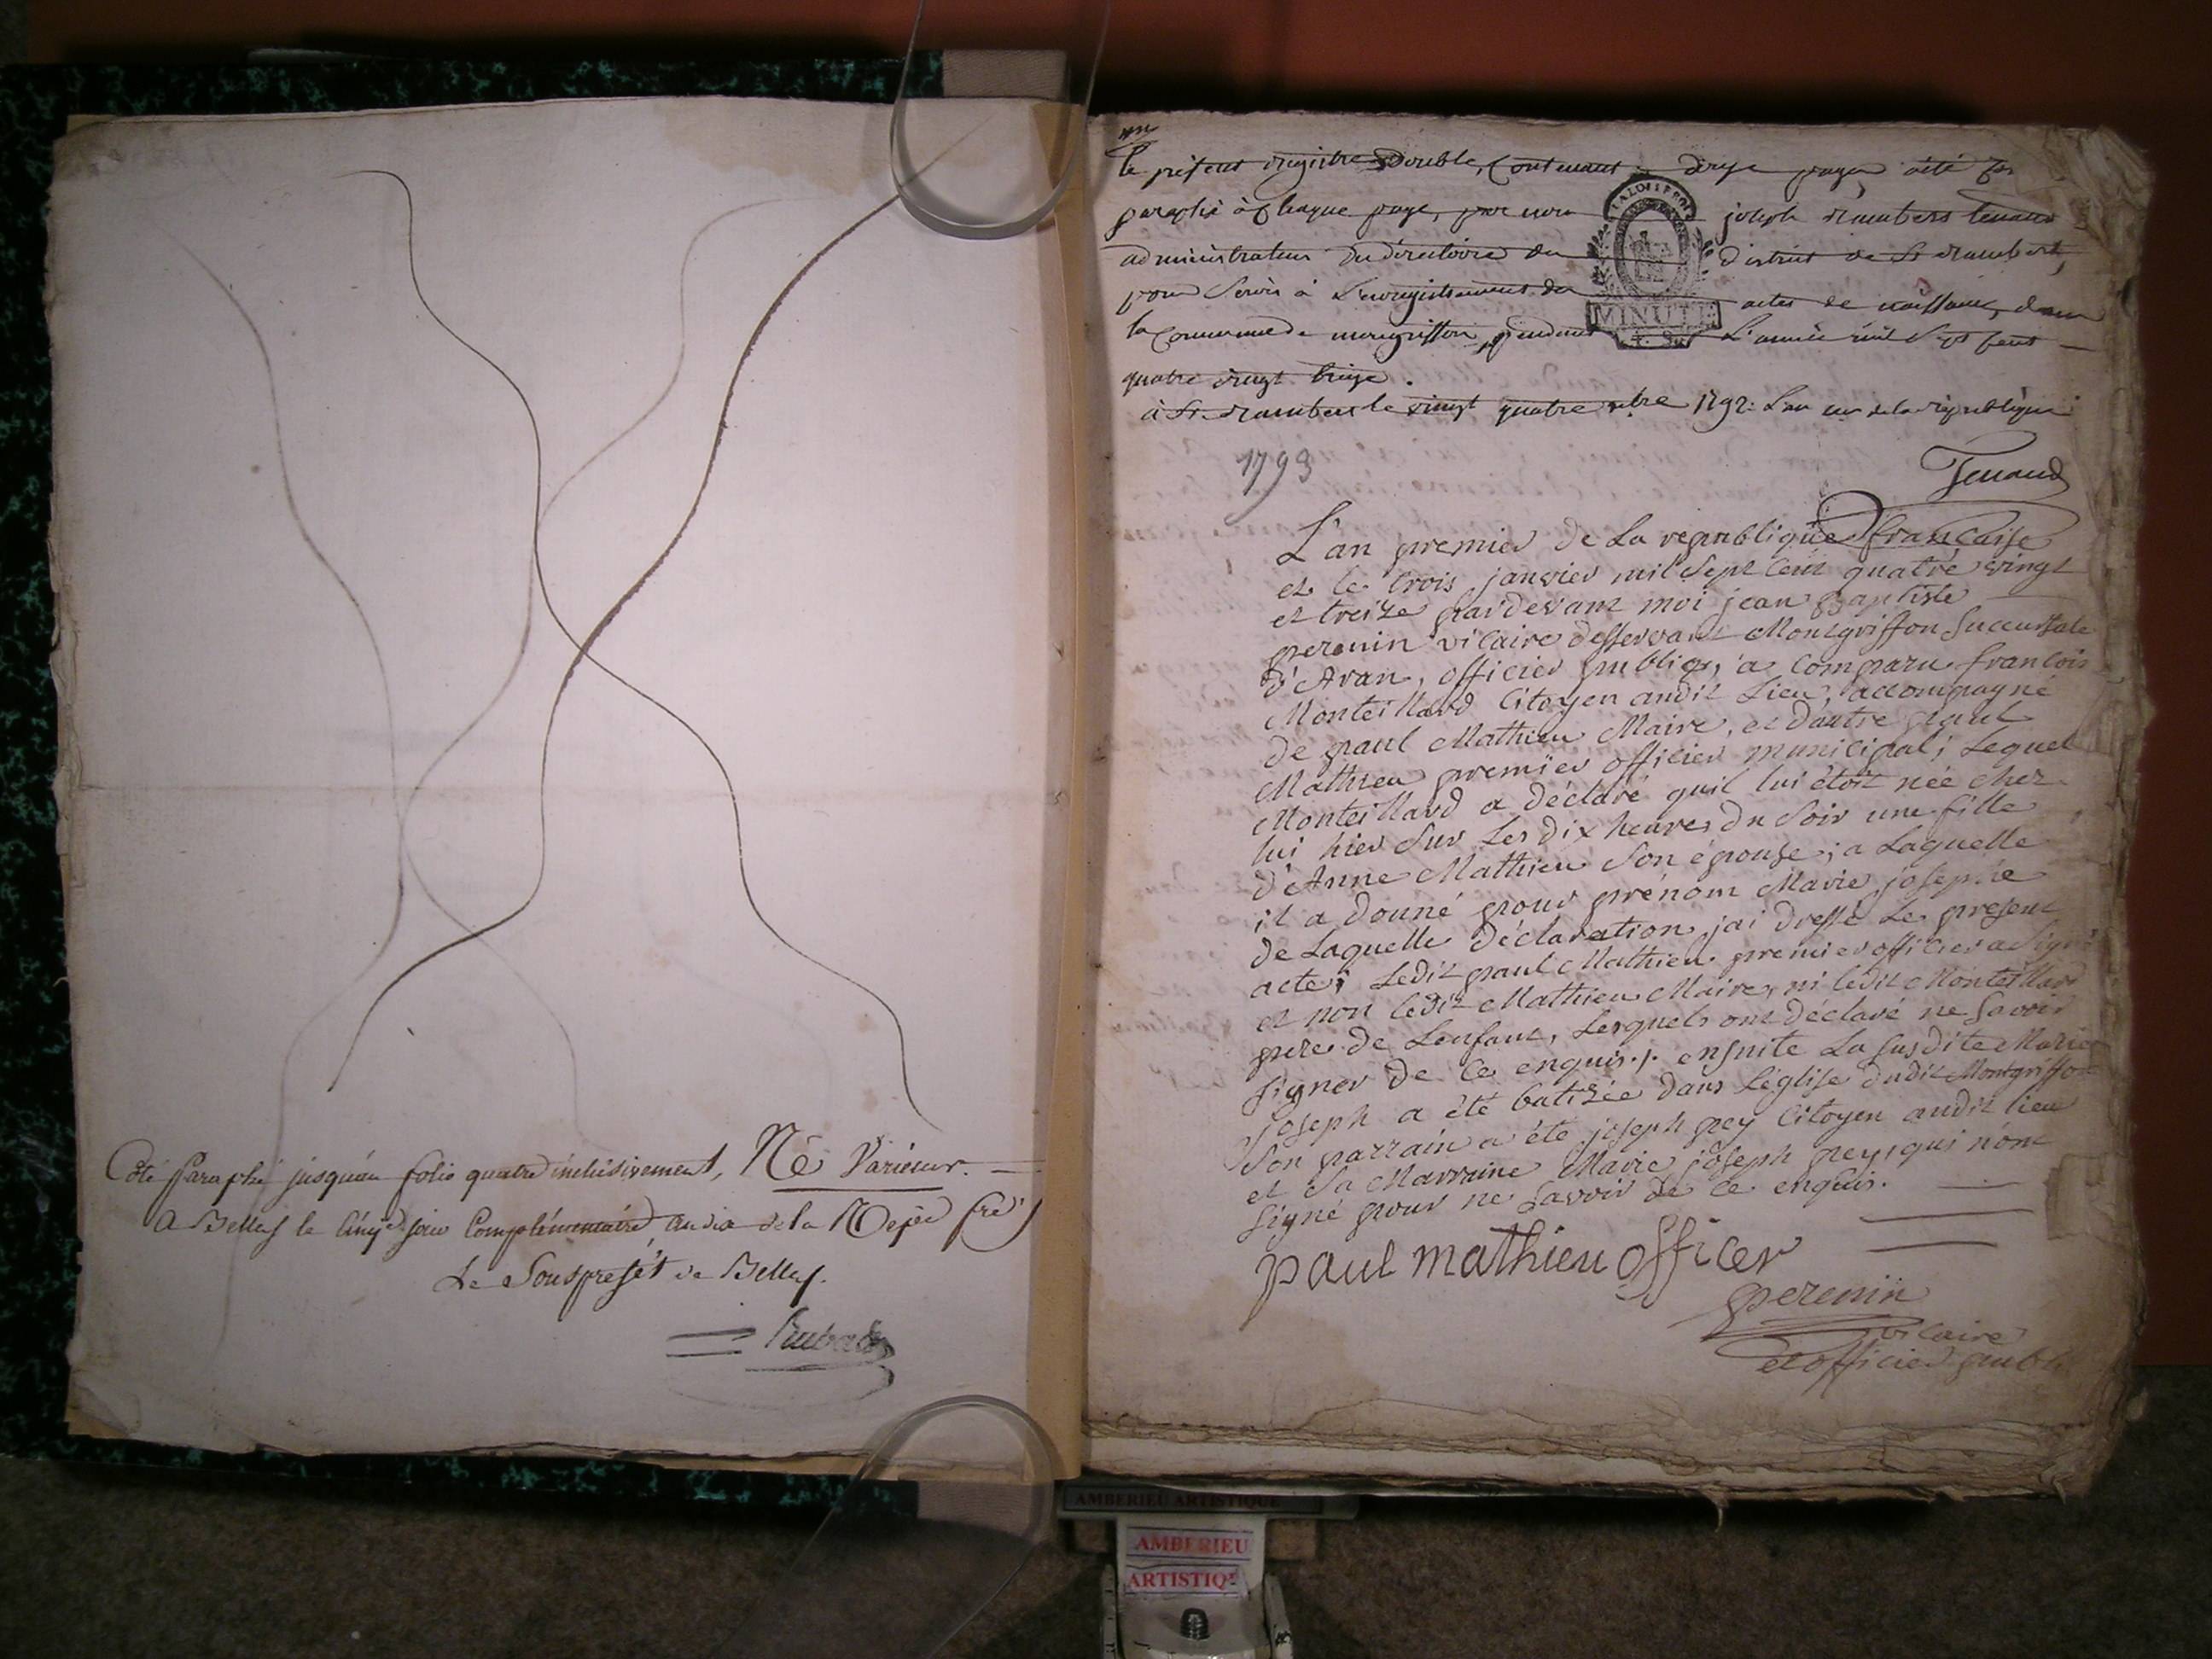 Coté Paraphé jusqu'au folio quatre inclusivement, Né Varietur.
A Belley le Cinq.e jour Complémentaire an dix de la
Le Sousprefét de Belley.
Le présent registre double, Contenant douze pages, a été
paraphé à Chaque page, par nous joseph rambert tenand
administrateur du directoire du district de St rambert,
pour Servir à L'enregistrement des actes de naissance, dans
la Commune de mongriffon, pendant L'année mil Sept Cent
quatre vingt treize.
à St. rambert le vingt quatre xbre 1792. L'an 1er de la république
Tenand
A LA LOI LE ROI
MINUTE
1793
L'an premier de La republique francaisse
et le trois janvier mil Sept Cent quatre vingt
et treize pardevant moi jean Baptiste
perenin vicaire desservant Montgriffon Succursale
d'Aran, officier publiq, a Comparu francois
Monteillard Citoyen audit Lieu, accompagné
de paul Mathieu Maire, et d'autre paul
Mathieu premier officier municipal; Lequel
Monteillard a déclaré quil lui étoit née chez
lui hier Sur Les dix heures du Soir une fille
d'Anne Mathieu Son épouse; a Laquelle
il a donné pour prénom Marie josephe
de Laquelle déclaration jai dressé Le present
acte; Ledit paul Mathieu premier officier a Signé
et non ledit Mathieu Maire, ni ledit Monteillard
pere de Lenfant, Lesquels ont déclaré ne Savoir
signer de Ce enquis./. ensuite La susdite Marie
joseph a été batisée dans L'église dudit Montgriffon
Son parrain a été joseph pey Citoyen audit lieu
et Sa Marraine Marie joseph pey, qui n'ont
signé pour ne Savoir de Ce enquis.
paul mathieu officer
perenin
vicaire
et officier publi
AMBERIEU ARTISTIQUE
AMBERIEU
ARTISTIQ